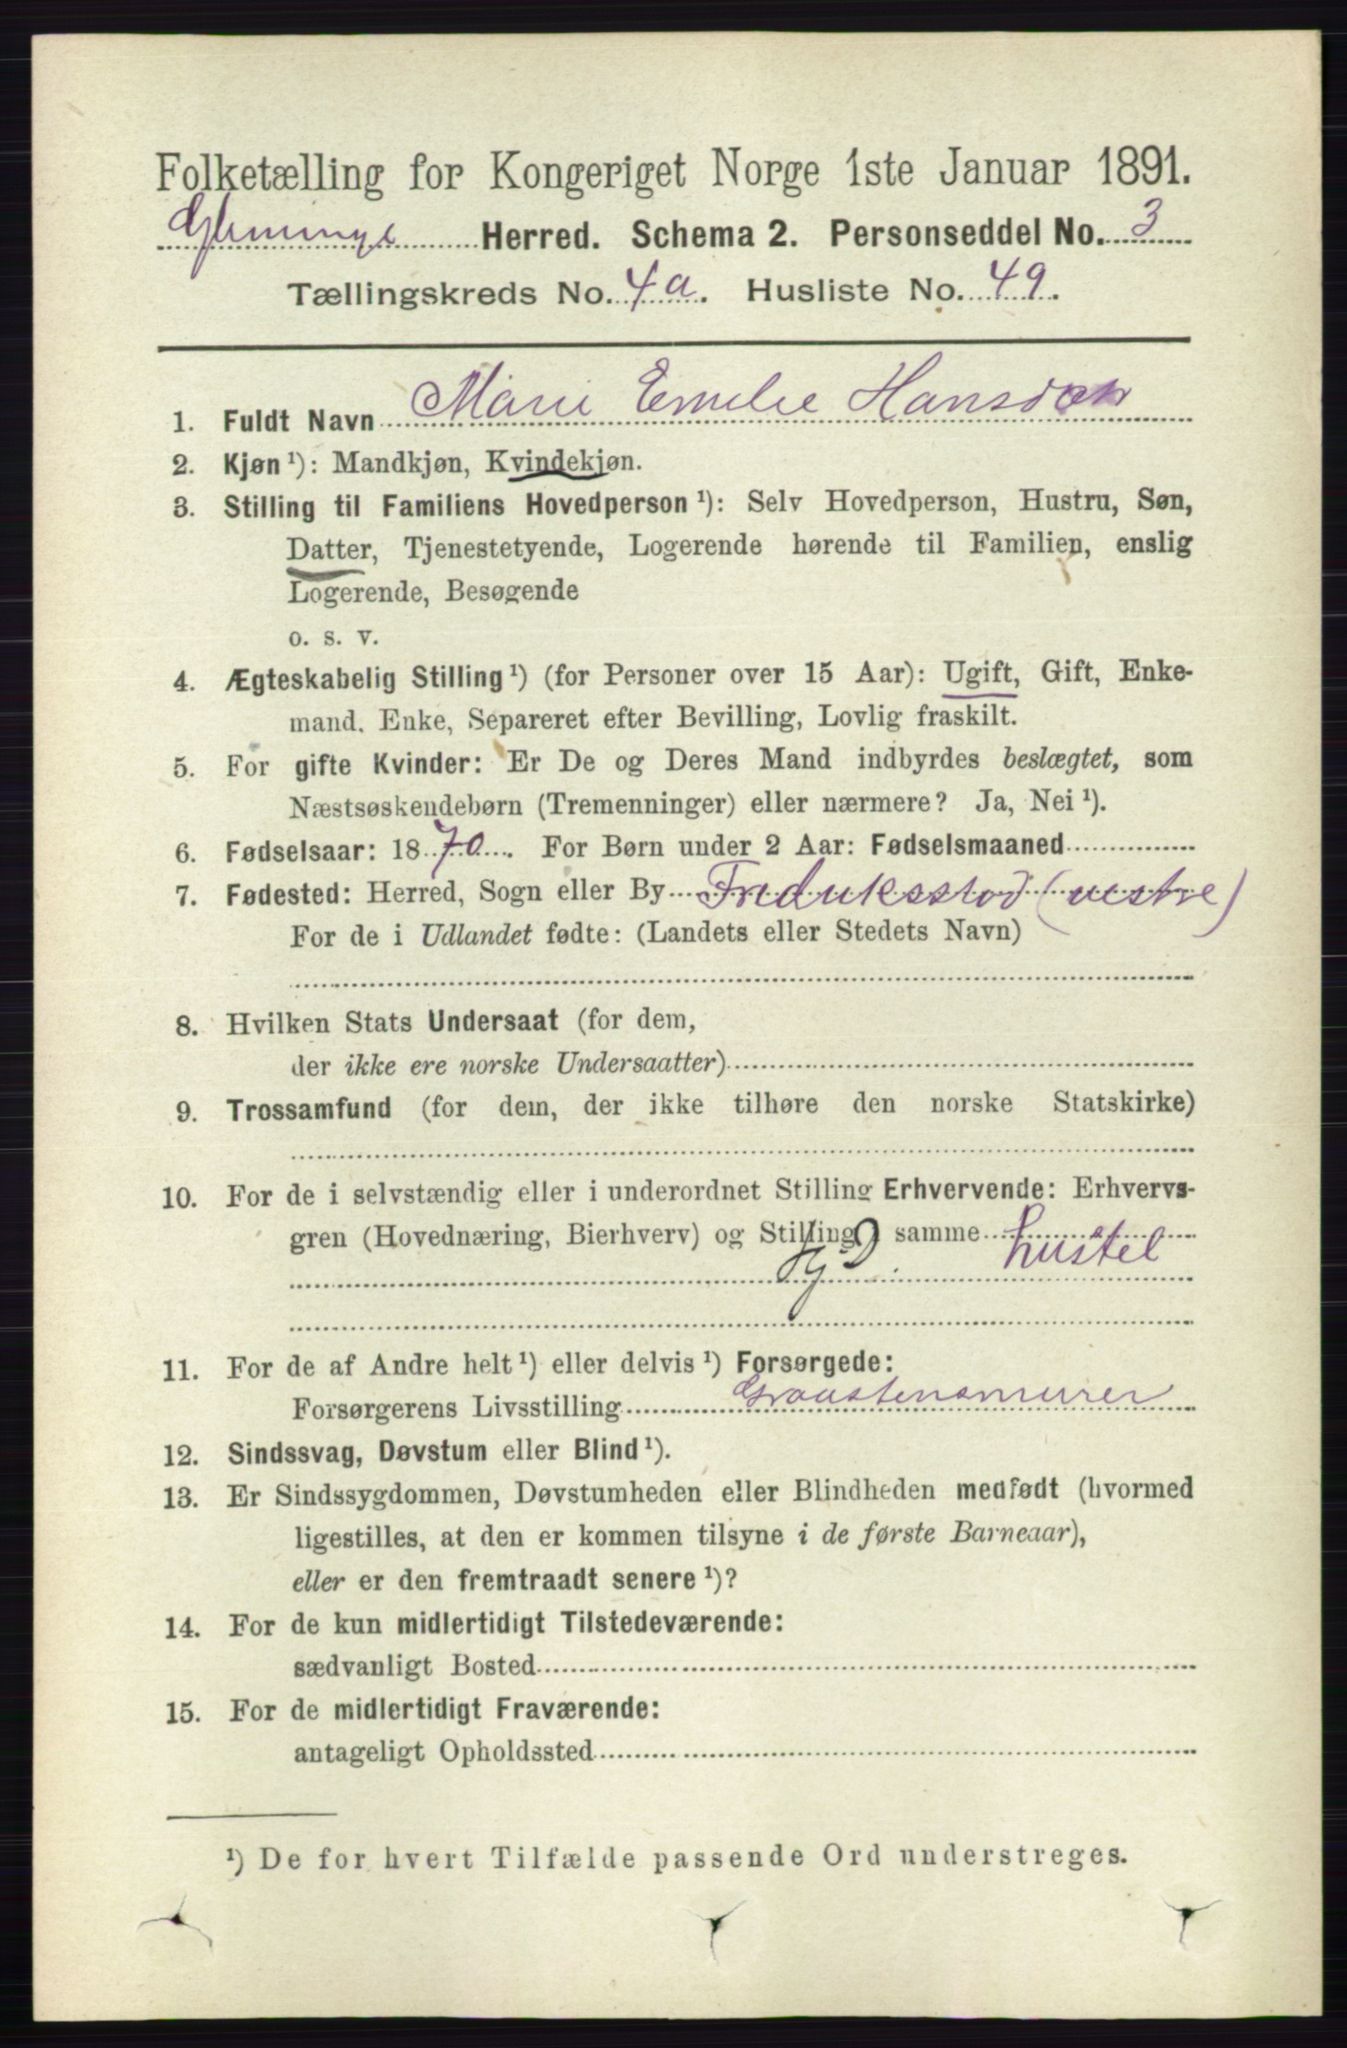 Folketælling for Kongeriget Norge 1ste Januar 1891.
Glemminge Herred. Schema 2. Personseddel No. 3
Tællingskreds No. 4a. Husliste No. 49.
1. Fuldt Navn Marie Emelie Hansdatr
2. Kjøn ¹): Mandkjøn, Kvindekjøn.
3. Stilling til Familiens Hovedperson ¹): Selv Hovedperson, Hustru, Søn,
Datter, Tjenestetyende, Logerende hørende til Familien, enslig
Logerende, Besøgende
o. s. v.
4. Ægteskabelig Stilling ¹) (for Personer over 15 Aar): Ugift, Gift, Enke-
mand, Enke, Separeret efter Bevilling, Lovlig fraskilt.
5. For gifte Kvinder: Er De og Deres Mand indbyrdes beslægtet, som
Næstsøskendebørn (Tremenninger) eller nærmere? Ja, Nei ¹).
6. Fødselsaar: 1870. For Børn under 2 Aar: Fødselsmaaned
7. Fødested: Herred, Sogn eller By Fredriksstad (vestre)
For de i Udlandet fødte: (Landets eller Stedets Navn)
8. Hvilken Stats Undersaat (for dem,
der ikke ere norske Undersaatter)
9. Trossamfund (for dem, der ikke tilhøre den norske Statskirke)
10. For de i selvstændig eller i underordnet Stilling Erhvervende: Erhvervs-
gren (Hovednæring, Bierhverv) og Stilling i samme hustel
11. For de af Andre helt ¹) eller delvis ¹) Forsørgede:
Forsørgerens Livsstilling Graastensmurer
12. Sindssvag, Døvstum eller Blind ¹).
13. Er Sindssygdommen, Døvstumheden eller Blindheden medfødt (hvormed
ligestilles, at den er kommen tilsyne i de første Barneaar),
eller er den fremtraadt senere ¹)?
14. For de kun midlertidigt Tilstedeværende:
sædvanligt Bosted
15. For de midlertidigt Fraværende:
antageligt Opholdssted
¹) De for hvert Tilfælde passende Ord understreges.